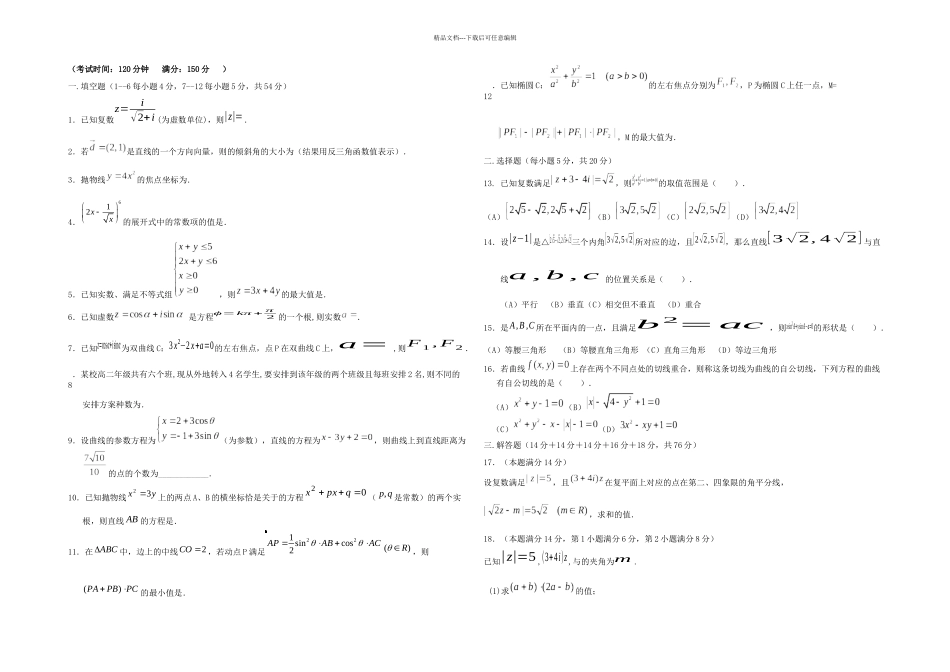 精品文档---下载后可任意编辑
(考试时间:120分钟 满分:150分 )
一.填空题(1--6每小题4分,7--12每小题5分,共54分)
1.已知复数 z=i/(√2+i) (为虚数单位),则|z|=.
2.若d=(2,1)是直线的一个方向向量,则的倾斜角的大小为(结果用反三角函数值表示).
3.抛物线 y=4x² 的焦点坐标为.
4.(2x-1/√x)⁶ 的展开式中的常数项的值是.
x+y≤5
2x+y≤6
x≥0
y≥0
5.已知实数、满足不等式组 ,则 z=3x+4y 的最大值是.
6.已知虚数 z=cosα+i sinα 是方程 φ=kπ+π/2 的一个根,则实数a=.
7.已知为双曲线C: 3x²-2x+a=0 的左右焦点,点P在双曲线C上, a= ,则 F₁,F₂ .
.某校高二年级共有六个班,现从外地转入4名学生,要安排到该年级的两个班级且每班安排2名,则不同的
8
安排方案种数为.
9.设曲线的参数方程为 x=2+3cosθ y=-1+3sinθ (为参数),直线的方程为 x-3y+2=0,则曲线上到直线距离为
7√10/10 的点的个数为___________.
10.已知抛物线 x²=3y 上的两点A、B的横坐标恰是关于的方程 x²+px+q=0 ( p,q 是常数)的两个实
根,则直线 AB 的方程是.
11.在 ΔABC 中,边上的中线 CO=2,若动点P满足 AP=1/2 sin²θ·AB+cos²θ·AC (θ∈R),则
(PA+PB)·PC 的最小值是.
.已知椭圆C: x²/a²+y²/b²=1 (a>b>0) 的左右焦点分别为 F₁,F₂,P为椭圆C上任一点,M=
12
|PF₁|-|PF₂|+PF₁·PF₂ 。M的最大值为.
二.选择题(每小题5分,共20分)
13.已知复数满足 |z+3-4i|=√2,则的取值范围是( ).
(A)[2√5-√2,2√5+√2] (B)[3√2,5√2] (C)[2√2,5√2] (D)[3√2,4√2]
14.设 |z-1| 是△三个内角 [3√2,5√2] 所对应的边,且 [2√2,5√2],那么直线 [3√2,4√2] 与直
线 a,b,c 的位置关系是( ).
(A)平行 (B)垂直(C)相交但不垂直 (D)重合
15.是 A,B,C 所在平面内的一点,且满足 b²=ac ,则的形状是( ).
(A)等腰三角形 (B)等腰直角三角形 (C)直角三角形 (D)等边三角形
16.若曲线 f(x,y)=0 上存在两个不同点处的切线重合,则称这条切线为曲线的自公切线,下列方程的曲线
有自公切线的是( ).
(A) x²+y-1=0 (B) |x|-√4-y²+1=0
(C) x²+y²-x-|x|-1=0 (D) 3x²-xy+1=0
三.解答题(14分+14分+14分+16分+18分,共76分)
17.(本题满分14分)
设复数满足 |z|=5,且 (3+4i)z 在复平面上对应的点在第二、四象限的角平分线,
|√2z-m|=5√2 (m∈R),求和的值.
18.(本题满分14分,第1小题满分6分,第2小题满分8分)
已知 |z|=5 ,(3+4i)z ,与的夹角为 m .
(1)求 (a+b)·(2a-b) 的值;